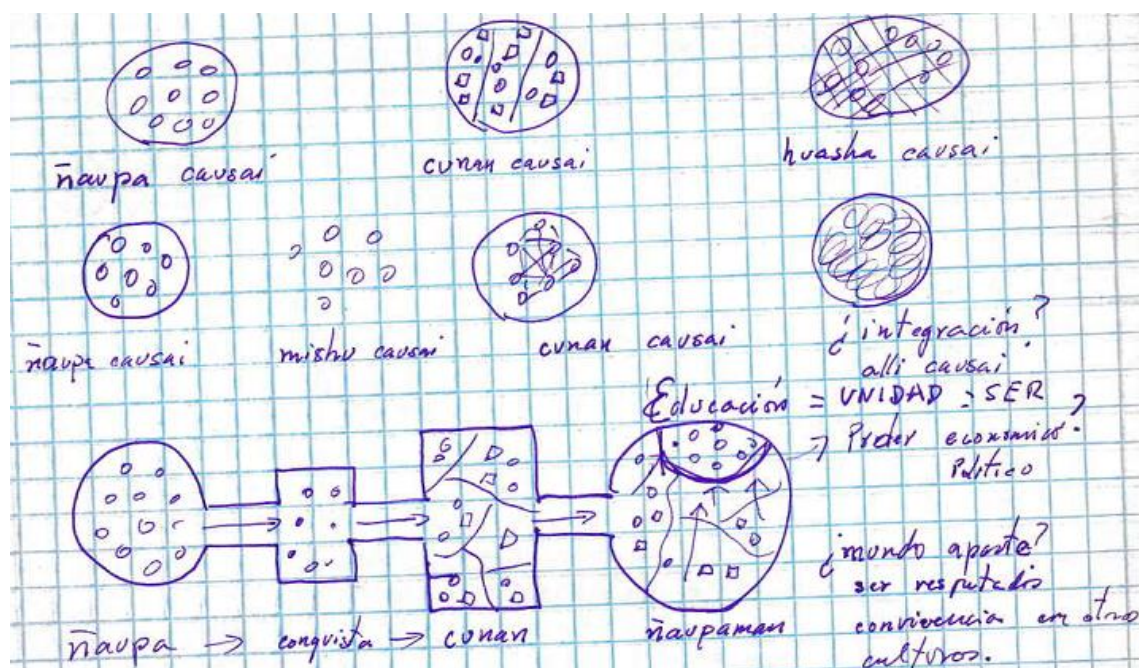 ñaupa causai
cunan causai
huasha causai
ñaupa causai
mishu causai
cunan causai
¿integración?
alli causai
Educación = UNIDAD = SER
Poder económico?
Político
¿mundo aparte?
ser respetados
convivencia en otras
culturas.
ñaupa → conquista → cunan
ñaupaman